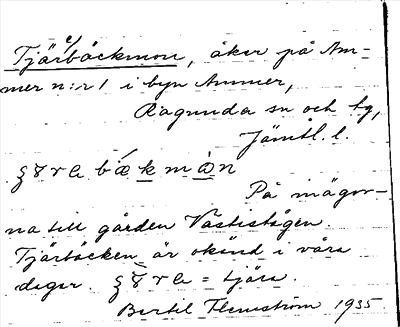 Tjärbäckmon, åker på Am-
mer n:r 1 i byn Ammer,
Ragunda sn och tg,
Jämtl. l.
bækmɑn
På mägor-
na till gården Västistägen
Tjärbäcken är okänd i våra
dagar. = tjära.
Bertil Flemström 1935